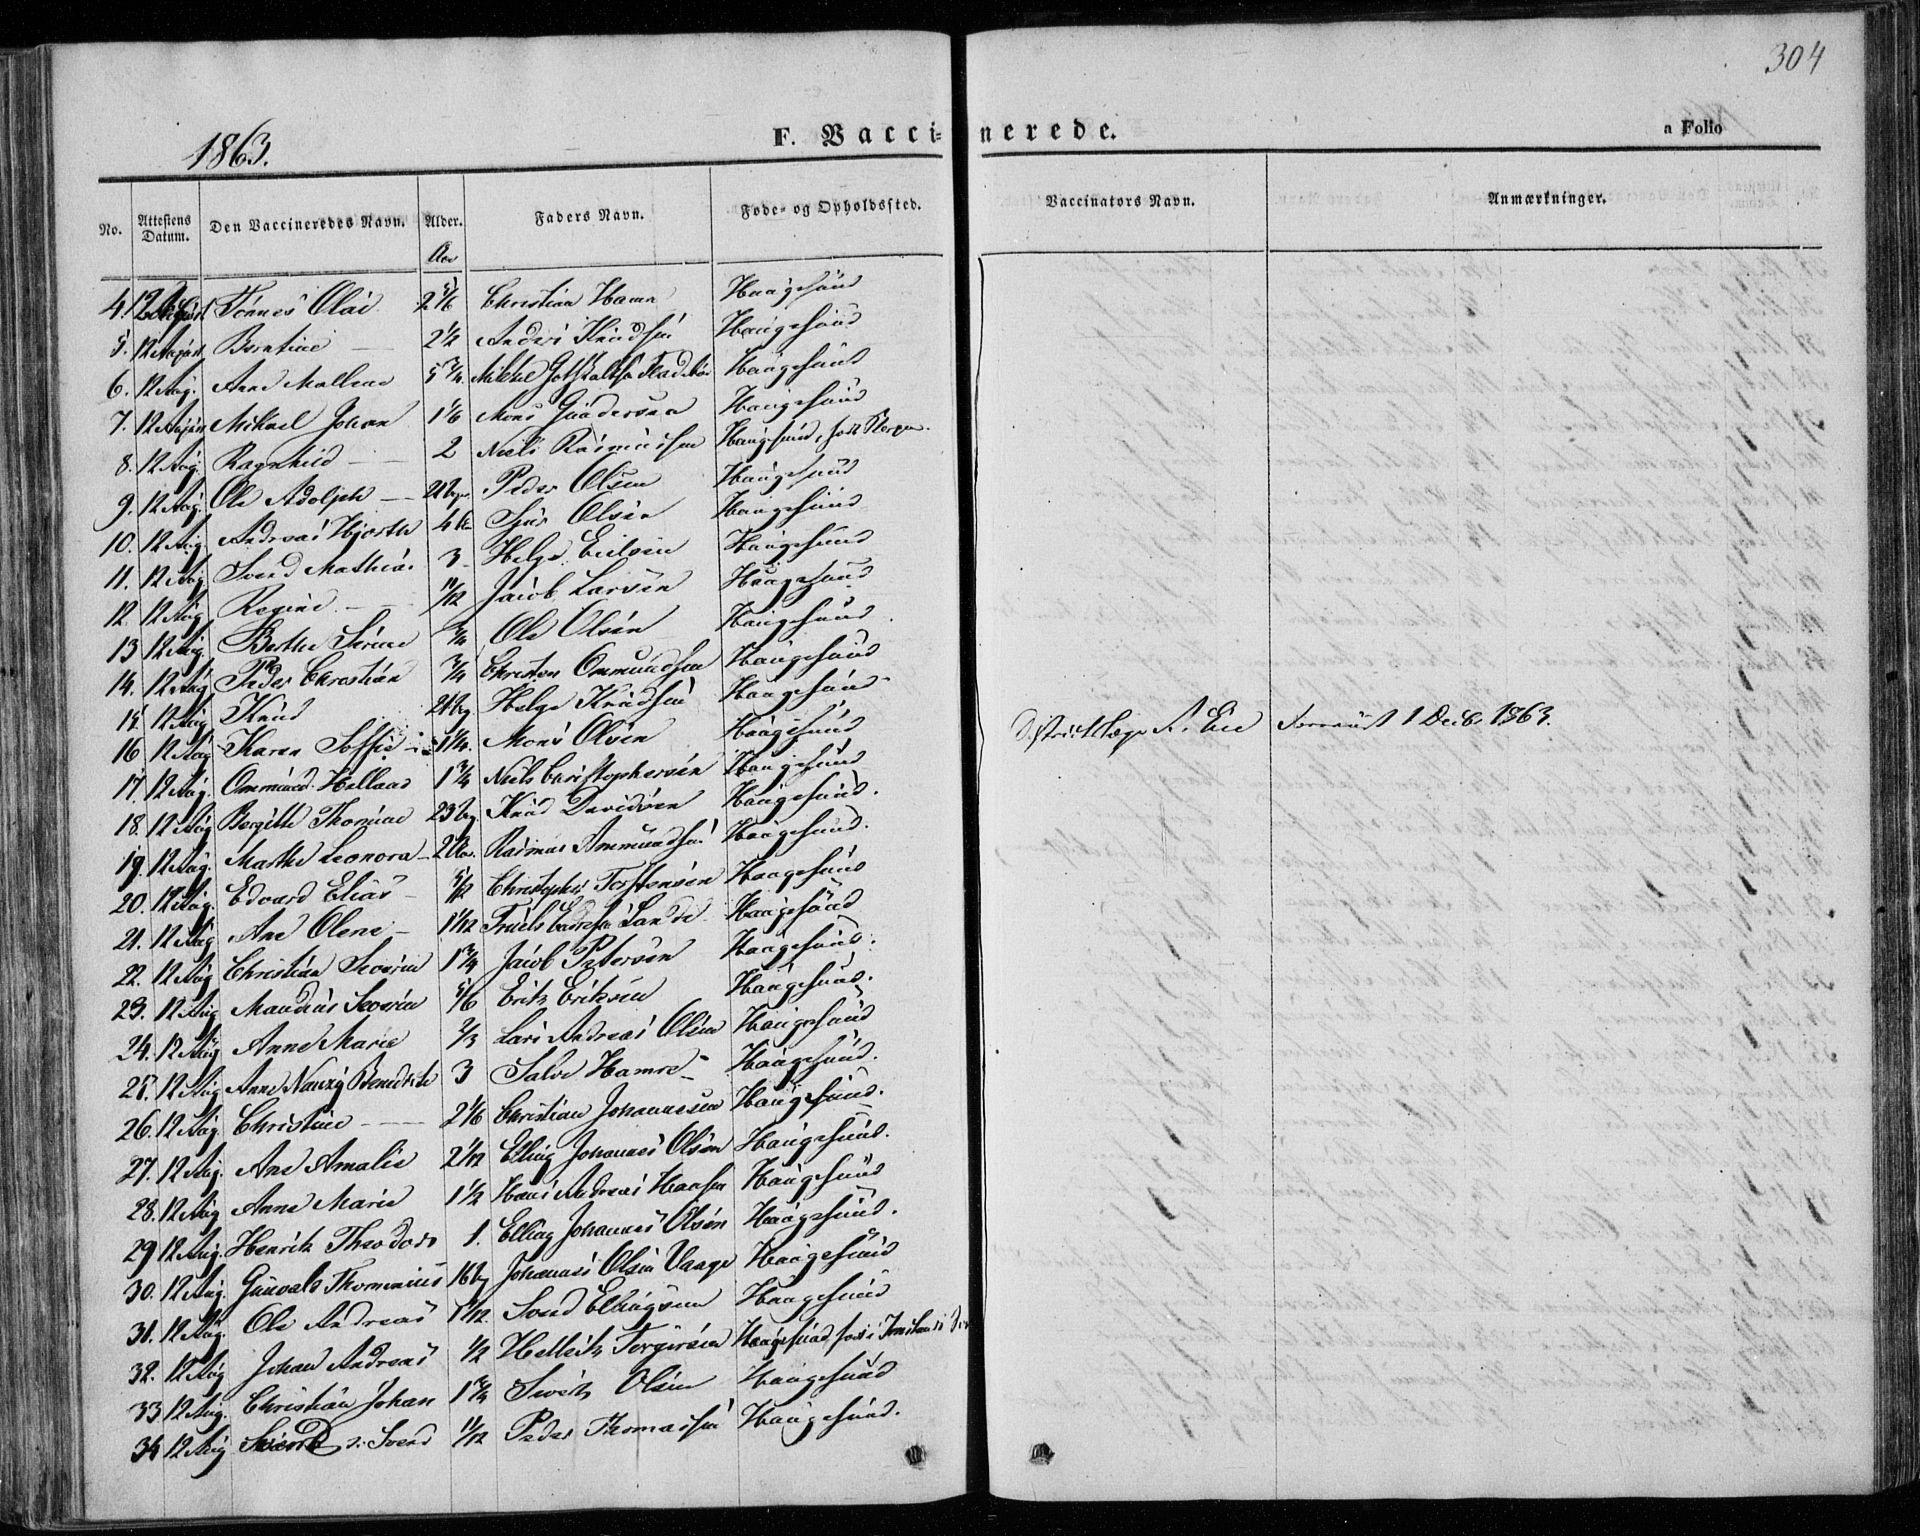 304
1863.
F. Vaccinerede.
a Folio
No. Attestens Datum. Den Vaccineredes Navn. Alder. Faders Navn. Føde- og Opholdssted. Vaccinators Navn. Anmærkninger.
Aar
4. 12 August Tønnes Olai 2 5/6 Christian Hamn Haugesund
5. 12 August Berntine — 2 1/2 Knudsen Haugesund
6. 12 Aug. Ane Malene 5 3/4 Mikkel Haugesund
7. 12 August Mikael Johan 1 1/6 Mons Gundersen Haugesund
8. 12 Aug. Ragnhild — 2 Niels Rasmussen Haugesund, født
9. 12 Aug. Ole Adolph — Peder Olsen Haugesund
10. 12 Aug. Andreas Hjorth 4 Sjur Olsen Haugesund
11. 12 Aug. Svend Mathias 3 Helge Haugesund
12. 12 Aug. Regine — 11/12 Jacob Larsen Haugesund
13 12 Aug. Berthe Serine 3/4 Ole Olsen Haugesund
14. 12 Aug Peder Christian 3/4 Christen Ommundsen Haugesund
15 12 Aug Knud Helge Knudsen Haugesund
16 12 Aug. Karen Soffie 1 1/4. Mons Olsen Haugesund Districtslæge 1 Decb. 1863.
17. 12 Aug. Ommund 1 3/4 Niels Christophersen Haugesund
18. 12 Aug Bergitte Thomine 23 Knud Davidsen Haugesund.
19. 12 Aug. Marthe Leonora 2 Rasmus Ammundsen Haugesund.
20. 12 Aug. Edvard Elias 5/12 Christopher Torstensen Haugesund
21. 12 Aug Ane Olene — 1 1/12 Truels Haugesund
22. 12 Aug Christian Severin 1 3/4 Jacob Petersen Haugesund.
23. 12 Aug Severin 5/6 Erik Eriksen Haugesund.
24. 12 Aug Anne Marie 2/3 Lars Andreas Olsen Haugesund
25. 12 Aug Anne 3 Salve Hamre Haugesund.
26. 12 Aug. Christine — 2 1/6 Christian Johannesen Haugesund.
27. 12 Aug. Ane Amalie 2 1/12 Elling Johannes Olsen Haugesund.
28. 12 Aug Anne Marie 1 1/2 Hans Andreas Hansen Haugesund
29 12 Aug. Henrik Theodor 1. Elling Johannes Olsen Haugesund.
30. 12 Aug. Gunvald Thominius 16 Johannes Olsen Vaage Haugesund
31. 12 Aug. Ole Andreas 1 1/12 Svend Ellingsen Haugesund
32. 12 Aug Johan Andreas 1/2 Torgersen Haugesund, født i
33 12 Aug. Christian Johan 1 3/4 Olsen Haugesund
34 12 Aug Svend 11/12 Peder Thomassen Haugesund.